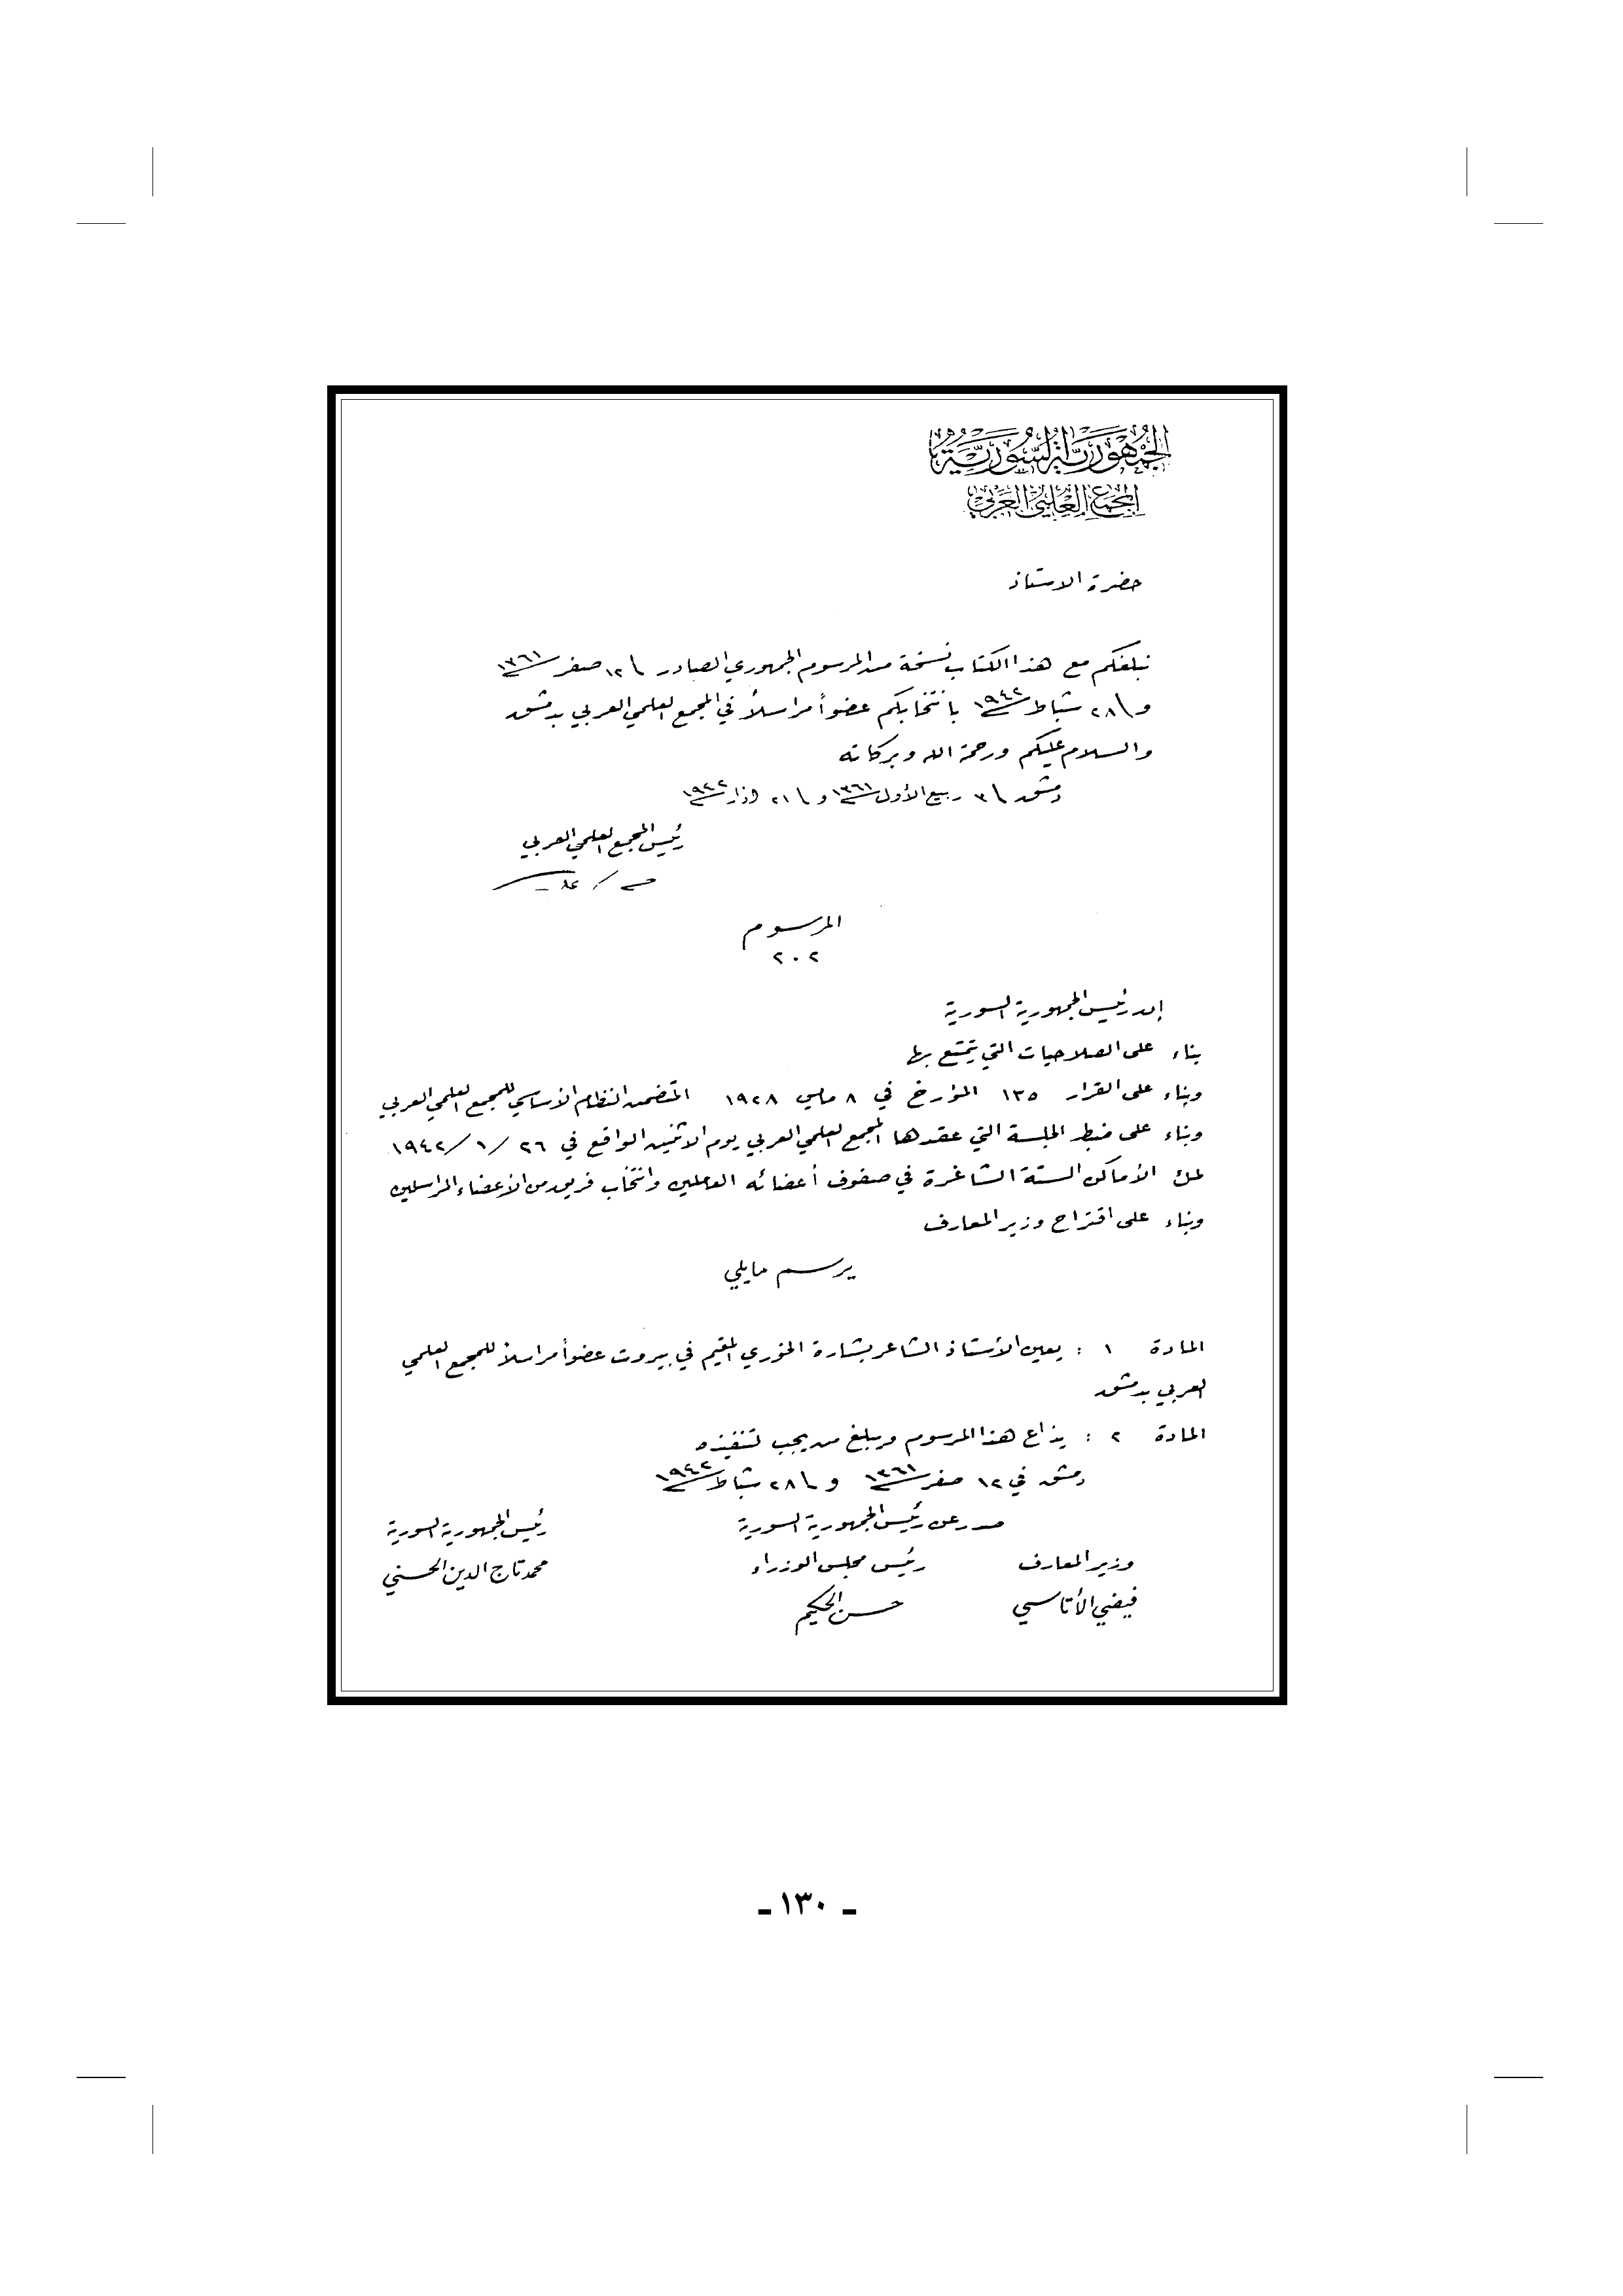 الجمهورية السورية
المجمع العلمي العربي
حضرة الاستاذ
نبلغكم مع هذا الكتاب نسخة من المرسوم الجمهوري الصادر \ ١٢ صفر ١٣٦١
و\ ٢٨ شباط ١٩٤٢ بانتخابكم عضواً مراسلاً في المجمع العلمي العربي بدمشق
والسلام عليكم ورحمة الله وبركاته
دمشق \ ٣ ربيع الأول ١٣٦١ و \ ٢١ اذار ١٩٤٢
رئيس المجمع العلمي العربي
المرسوم
٢٠٢
إن رئيس الجمهورية السورية
بناء على الصلاحيات التي يتمتع بها
وبناء على القرار ١٣٥ المؤرخ في ٨ مايس ١٩٢٨ المتضمن النظام الأساسي للمجمع العلمي العربي
وبناء على ضبط الجلسة التي عقدها المجمع العلمي العربي يوم الاثنين الواقع في ٢٦ /١ /١٩٤٢
لملء الأماكن الستة الشاغرة في صفوف أعضائه العاملين وانتخاب فريق من الأعضاء المراسلين
وبناء على اقتراح وزير المعارف
يرسم مايلي
المادة ١ : يعين الأستاذ الشاعر بشارة الخوري المقيم في بيروت عضواً مراسلاً للمجمع العلمي
العربي بدمشق
المادة ٢ : يذاع هذا المرسوم ويبلغ من يجب لتنفيذه
دمشق في ١٢ صفر ١٣٦١ و \ ٢٨ شباط ١٩٤٢
صدر عن رئيس الجمهورية السورية رئيس الجمهورية السورية
وزير المعارف رئيس مجلس الوزراء محمد تاج الدين الحسني
فيضي الأتاسي حسن الحكيم
ـ ١٣٠ ـ